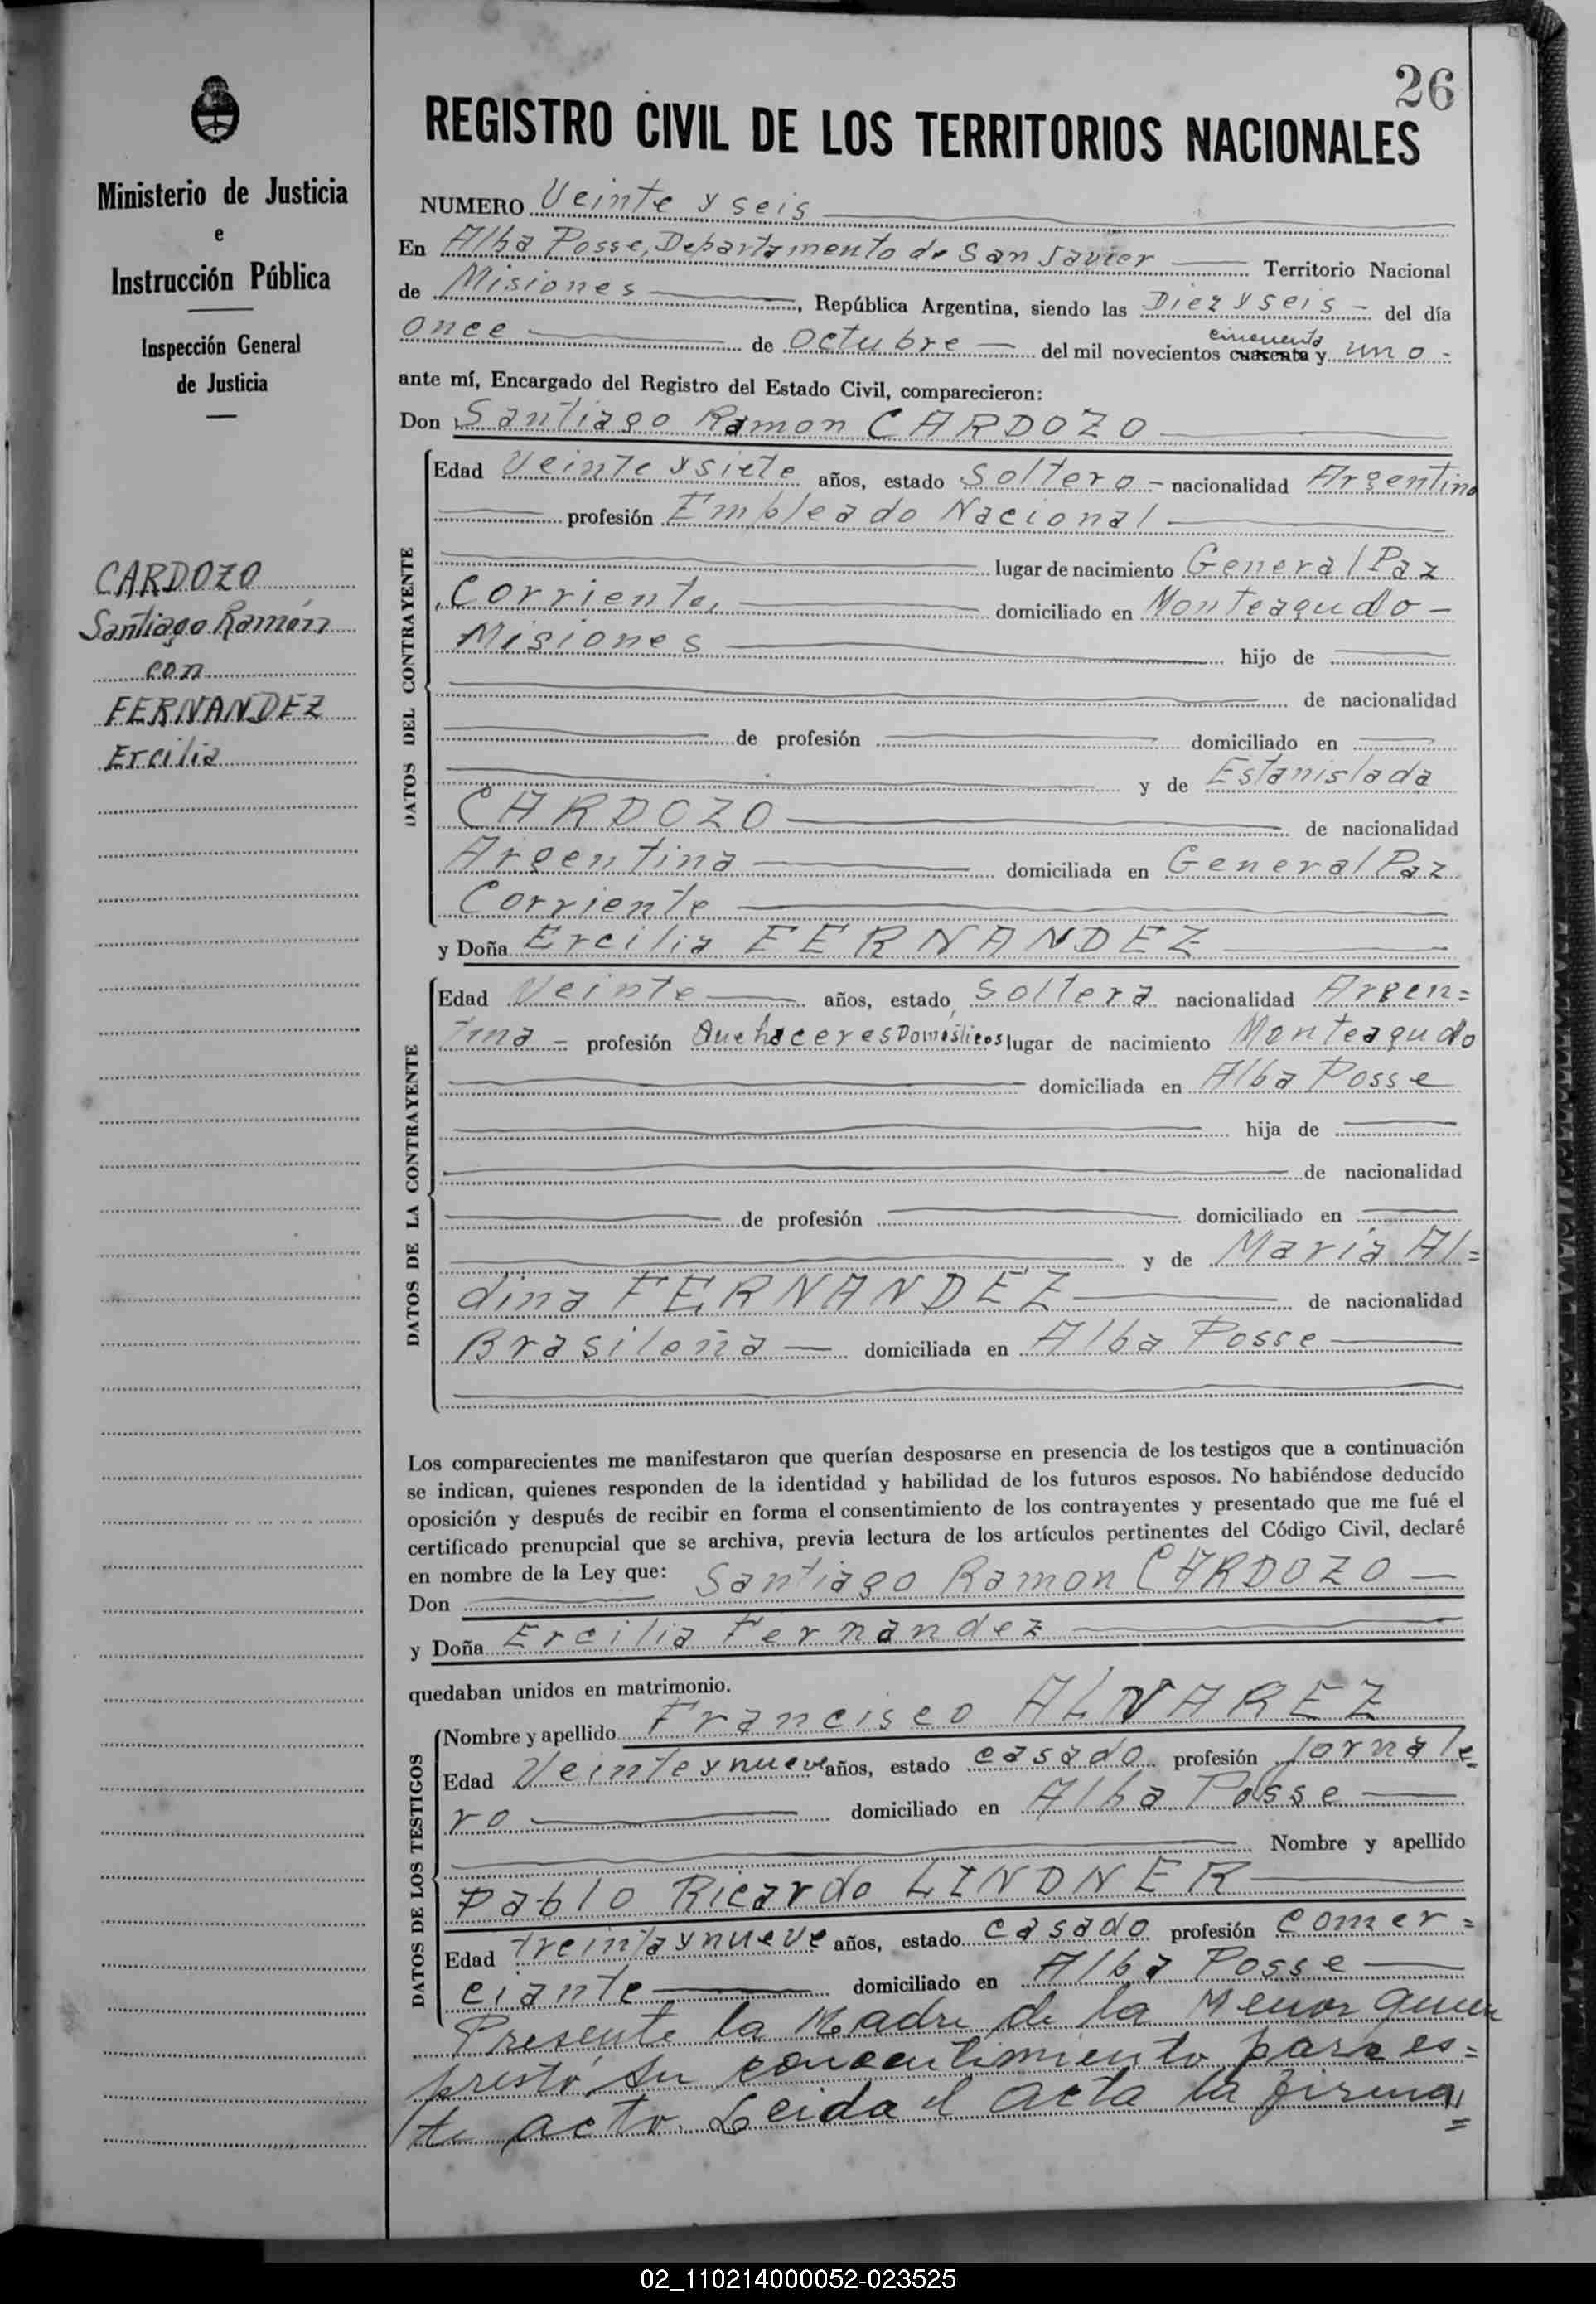 26
REGISTRO CIVIL DE LOS TERRITORIOS NACIONALES
Ministerio de Justicia
e
Instrucción Pública
Inspección General
de Justicia
CARDOZO
Santiago Ramón
con
FERNANDEZ
Ercilia
NUMERO Veinte y seis
En Alba Posse, Departamento de San Javier Territorio Nacional
de Misiones, República Argentina, siendo las Diez y seis - del día
once de Octubre del mil novecientos cuarenta cincuenta y uno -
ante mí, Encargado del Registro del Estado Civil, comparecieron:
Don Santiago Ramon CARDOZO
DATOS DEL CONTRAYENTE
Edad Veinte y siete años, estado Soltero - nacionalidad Argentino
profesión Empleado Nacional
lugar de nacimiento General Paz
Corriente, domiciliado en Monteagudo -
Misiones hijo de
de nacionalidad
de profesión domiciliado en
y de Estanislada
CARDOZO de nacionalidad
Argentina domiciliada en General Paz
Corriente
y Doña Ercilia FERNANDEZ
DATOS DE LA CONTRAYENTE
Edad Veinte años, estado Soltera nacionalidad Argen=
tina = profesión Quehaceres Domésticos lugar de nacimiento Monteagudo
domiciliada en Alba Posse
hija de
de nacionalidad
de profesión domiciliado en
y de Maria Al=
dina FERNANDEZ de nacionalidad
Brasileña domiciliada en Alba Posse
Los comparecientes me manifestaron que querían desposarse en presencia de los testigos que a continuación
se indican, quienes responden de la identidad y habilidad de los futuros esposos. No habiéndose deducido
oposición y después de recibir en forma el consentimiento de los contrayentes y presentado que me fué el
certificado prenupcial que se archiva, previa lectura de los artículos pertinentes del Código Civil, declaré
en nombre de la Ley que: Santiago Ramon CARDOZO
Don
y Doña Ercilia Fernandez
quedaban unidos en matrimonio.
DATOS DE LOS TESTIGOS
Nombre y apellido Francisco ALVAREZ
Edad Veinte y nueve años, estado casado profesión jornale=
ro domiciliado en Alba Posse
Nombre y apellido
Pablo Ricardo LINDNER
Edad treinta y nueve años, estado casado profesión comer=
ciante domiciliado en Alba Posse
Presente la Madre de la Menor quien
prestó su concentimiento para es=
te acto. Leida el acta la firman=
02_110214000052-023525